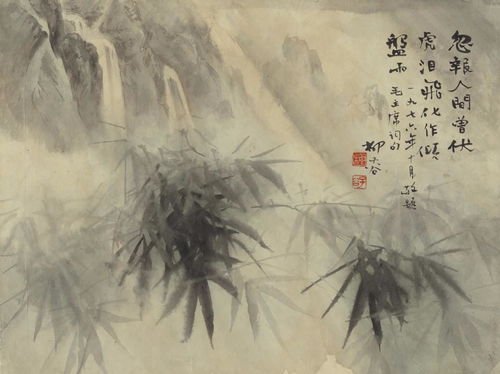 忽報人間曾伏
虎泪飛化作傾
盤雨
毛主席詞句
一九七六年十月敬題
柳子谷